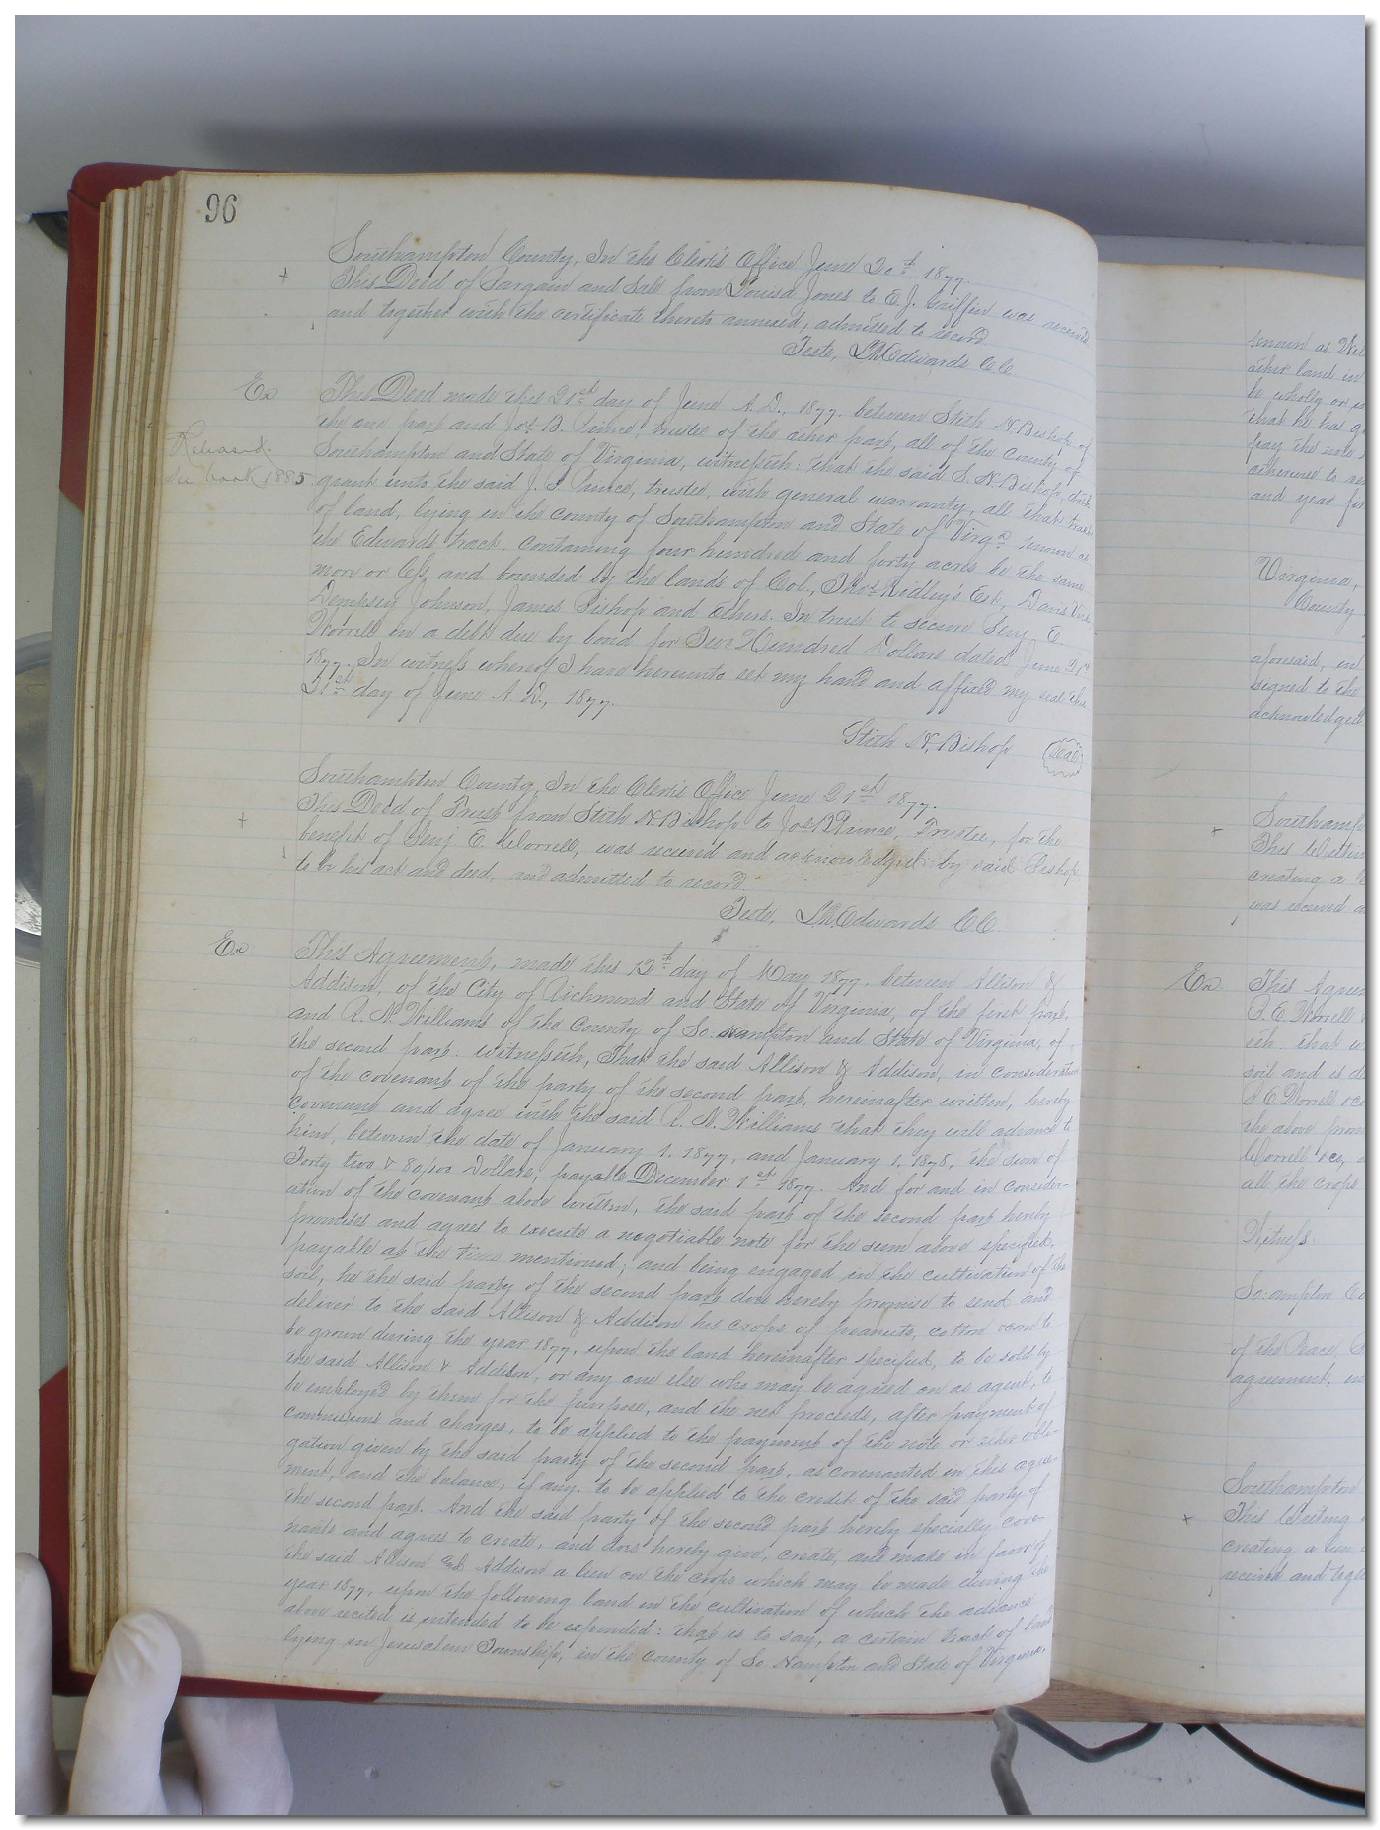 96
Southampton County, In the Clerk's Office June 20th 1877.
+ This Deed of Bargain and Sale from Louisa Jones to E. J. Griffin was received
and together with the certificate thereto annexed, admitted to record
Teste, L.R. Edwards C.C.
Ex This Deed made this 21st day of June A.D., 1877. between Stith N. Bishop of
the one part and Jos. B. Prince, trustee of the other part, all of the County of
Released.
Southampton and State of Virginia, witnesseth: that the said S. N. Bishop, doth
See book 1885
grant unto the said J. B. Prince, trustee, with general warranty, all that tract
of land, lying in the county of Southampton and State of Virga known as
the Edwards tract. containing four hundred and forty acres be the same
more or less, and bounded by the lands of Col., Thos Ridley's Est, Davis
Dempsey Johnson, James Bishop and others. In trust to secure Benj. E.
Worrell on a debt due by bond for Hundred Dollars dated June 21st
1877. In witness whereof I have hereunto set my hand and affixed my seal this
21st day of June A.D., 1877.
Stith N. Bishop Seal
Southampton County, In the Clerk's Office June 21st 1877.
+ This Deed of Trust from Stith N. Bishop to Jos B Prince, Trustee, for the
benefit of Benj E. Worrell, was received and acknowledged by said Bishop
to be his act and deed. and admitted to record.
Teste, L.R. Edwards C.C.
Ex This Agreement, made this 12th day of May 1877. between Allison &
Addison, of the City of Richmond and State of Virginia, of the first part,
and R. N. Williams of the County of So. ampton and State of Virginia, of
the second part. witnesseth, That the said Allison & Addison, in consideration
of the covenant of the party of the second part. hereinafter written, hereby
covenant and agree with the said R. N. Williams that they will advance to
him, between the date of January 1. 1877, and January 1, 1878, the sum of
Forty two & 80/100 Dollars, payable December 1st 1877. And for and in consider-
ation of the covenant above written, the said part of the second part hereby
promises and agrees to execute a negotiable note for the sum above specified,
payable at the time mentioned; and being engaged in the cultivation of the
soil, he the said party of the second part does hereby promise to send and
deliver to the said Allison & Addison his crops of peanuts, cotton corn to
be grown during the year 1877, upon the land hereinafter specified, to be sold by
the said Allison & Addison, or any one else who may be agreed on as agent, to
be employed by them for the purpose, and the net proceeds, after payment of
commissions and charges, to be applied to the payment of the note or other obli-
gation given by the said party of the second part, as covenanted in this agree-
ment, and the balance, if any. to be applied to the credit of the said party of
the second part. And the said party of the second part hereby specially cove-
nants and agrees to create, and does hereby give, create, and make in favor of
the said Allison and Addison a lien on the crops which may be made during the
year 1877, upon the following land in the cultivation of which the advance
above recited is intended to be expended: that is to say, a certain tract of land
lying in Jerusalem Township, in the county of So. Hampton and State of Virginia,
known as
other land in
be wholly or
that he has
pay the note
adherence to
and year
Virginia,
County
aforesaid,
signed to the
acknowledged
+ Southamp
This
creating a
was received
Ex This Agree
E. Worrell
eth. that
soil and is
E. Worrell
the above
Worrell
all the crops
Witness.
So: ampton Co
of the Peace,
agreement,
Southampton
+ This Writing
creating a lien
received and toge